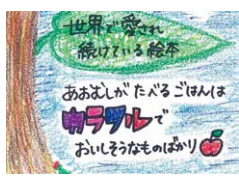 世界で愛され
続けている絵本
あおむしが たべる ごはんは
カラフルで
おいしそうなものばかり